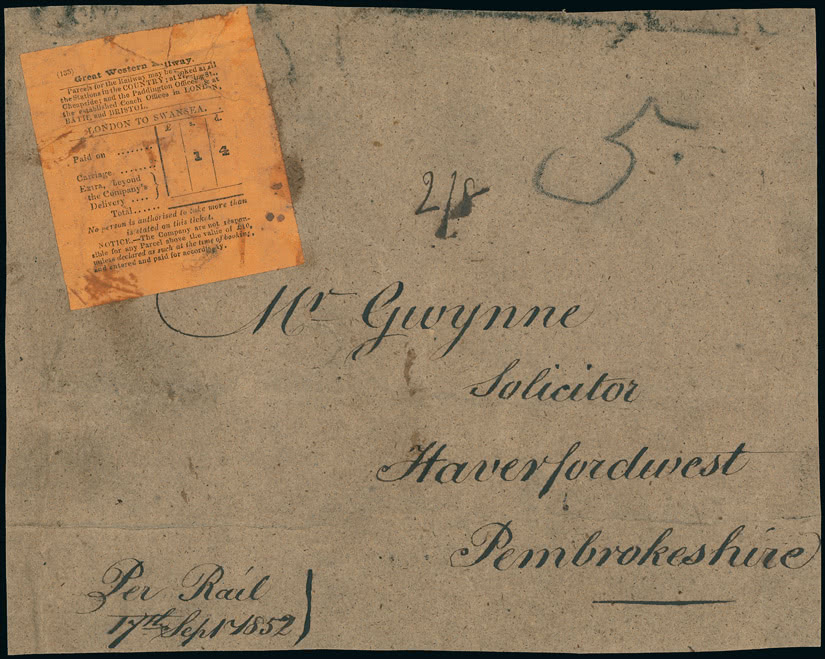 (135)
Great Western Railway.
Parcels for the Railway may be booked at all
the Stations in the COUNTRY; at
Cheapside; and the Paddington Office; & at
the established Coach Offices in LONDON,
BATH, and BRISTOL.
LONDON TO SWANSEA.
£ s. d.
Paid on ........
1 4
Carriage ........
Extra, beyond
the Company's
Delivery ....
Total......
No person is authorised to take more than
is stated on this ticket.
NOTICE.—The Company are not respon-
sible for any Parcel above the value of £10,
unless declared as such at the time of booking,
and entered and paid for accordingly.
2/8
5.
Mr Gwynne
Solicitor
Haverfordwest
Pembrokeshire
Per Rail
17th Sept 1852